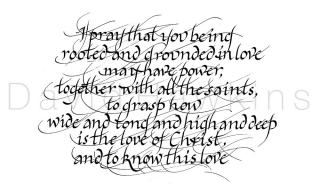 I pray that you being
rooted and grounded in love
may have power,
together with all the saints,
to grasp how
wide and long and high and deep
is the love of Christ,
and to know this love